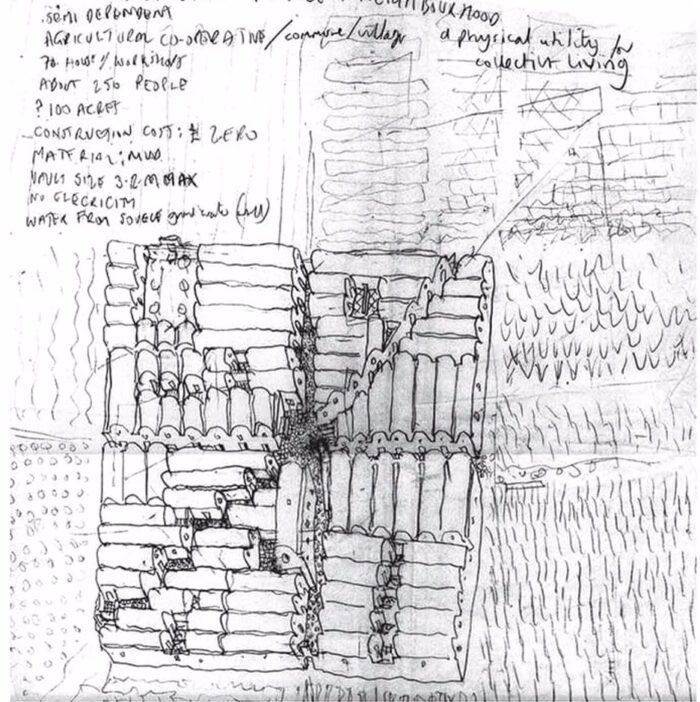 NEIGHBOURHOOD
SEMI DEPENDENT
AGRICULTURAL CO-OPERATIVE/commune/village
a physical utility for
collective living
70 HOUSES/WORKSHOPS
ABOUT 250 PEOPLE
? 100 ACRES
CONSTRUCTION COST: ZERO
MATERIAL: MUD
VAULT SIZE 3.2 M MAX
NO ELECRICITY
WATER FROM SOURCE